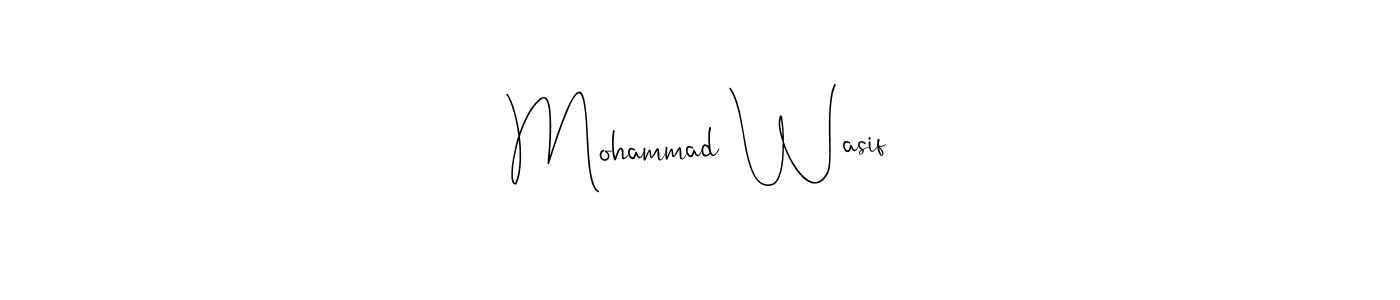 Mohammad Wasif